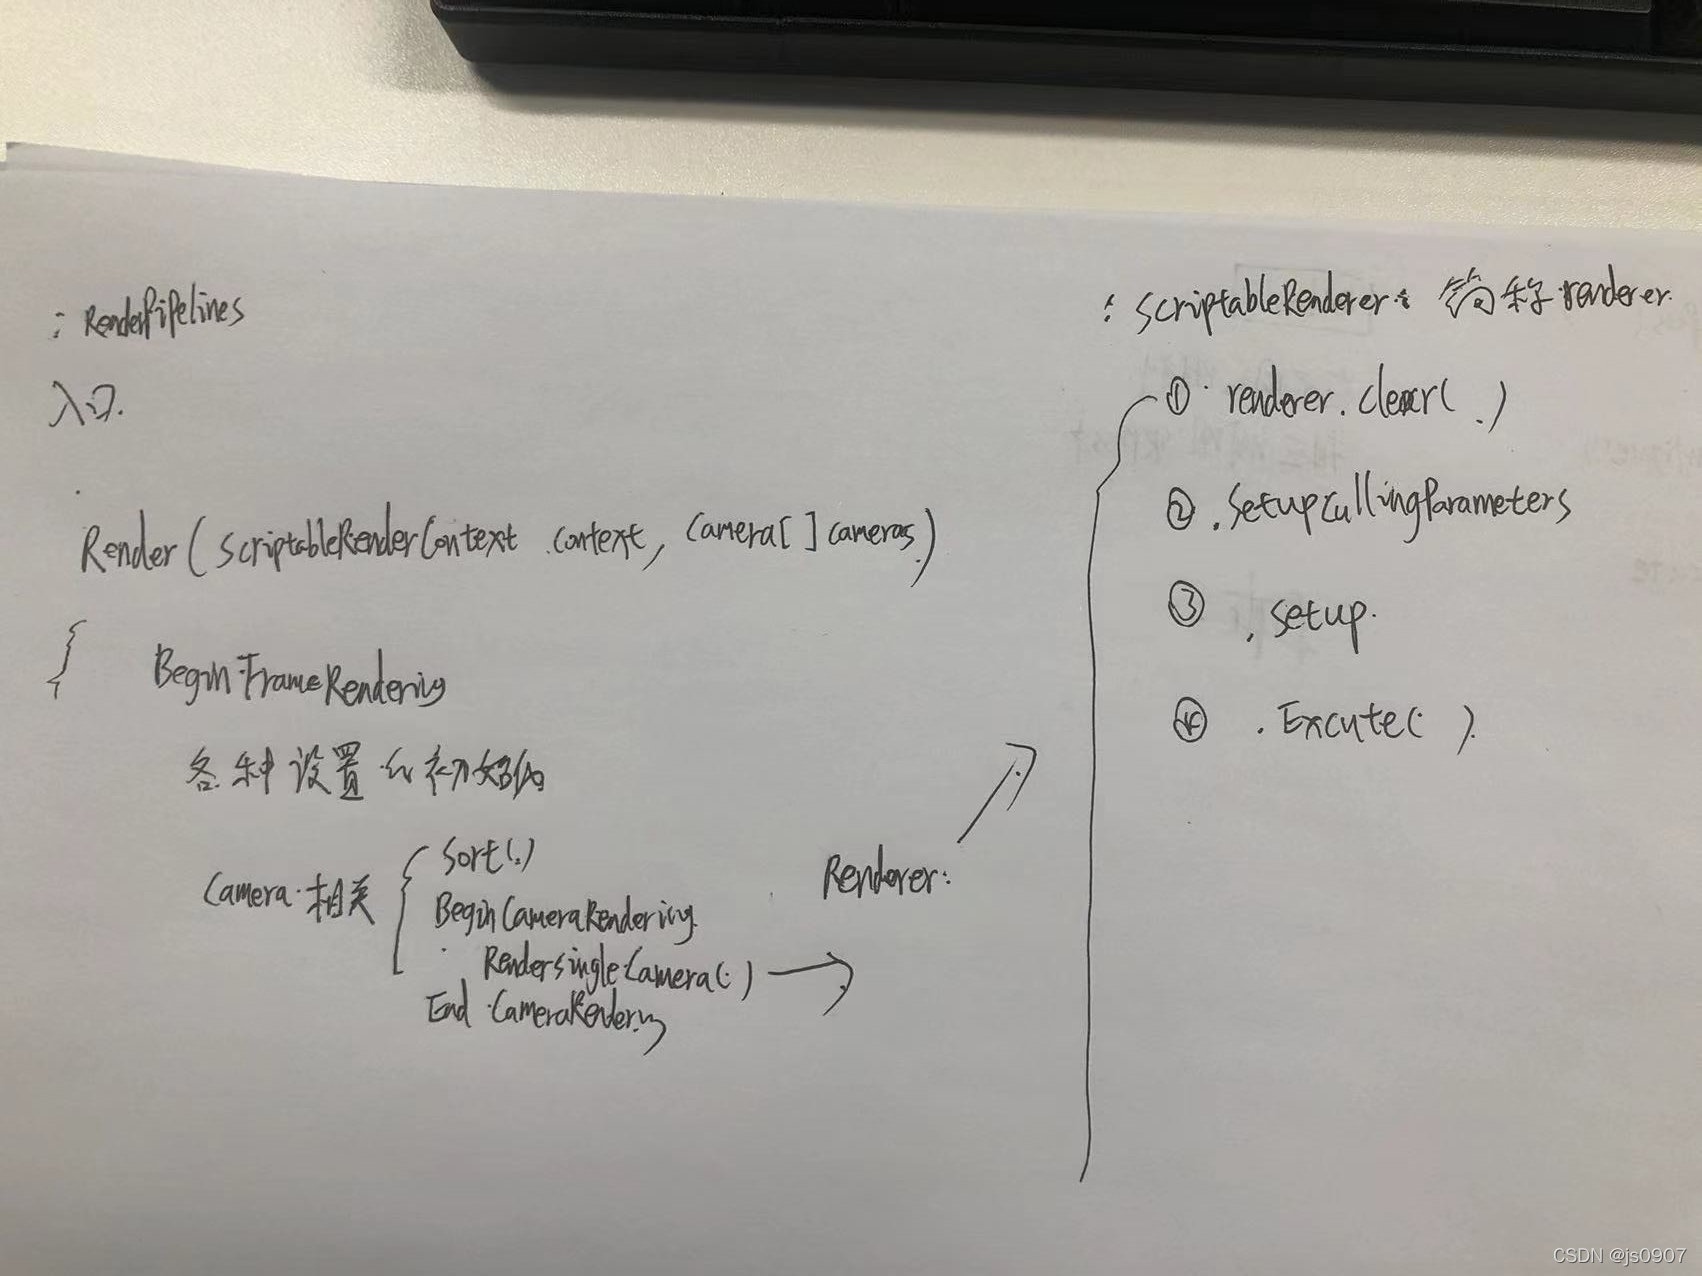 : RenderPipelines
入口.
Render(ScriptableRenderContext context, Camera[] cameras)
{
BeginFrameRendering
各种设置和初始化
Camera相关 {
Sort(.)
BeginCameraRendering.
RenderSingleCamera(.) →
End CameraRendering
Renderer:
: ScriptableRenderer: 简称renderer.
① renderer.clear( .)
② .SetupCullingParameters
③ .setup.
④ .Excute( ).
CSDN @js0907